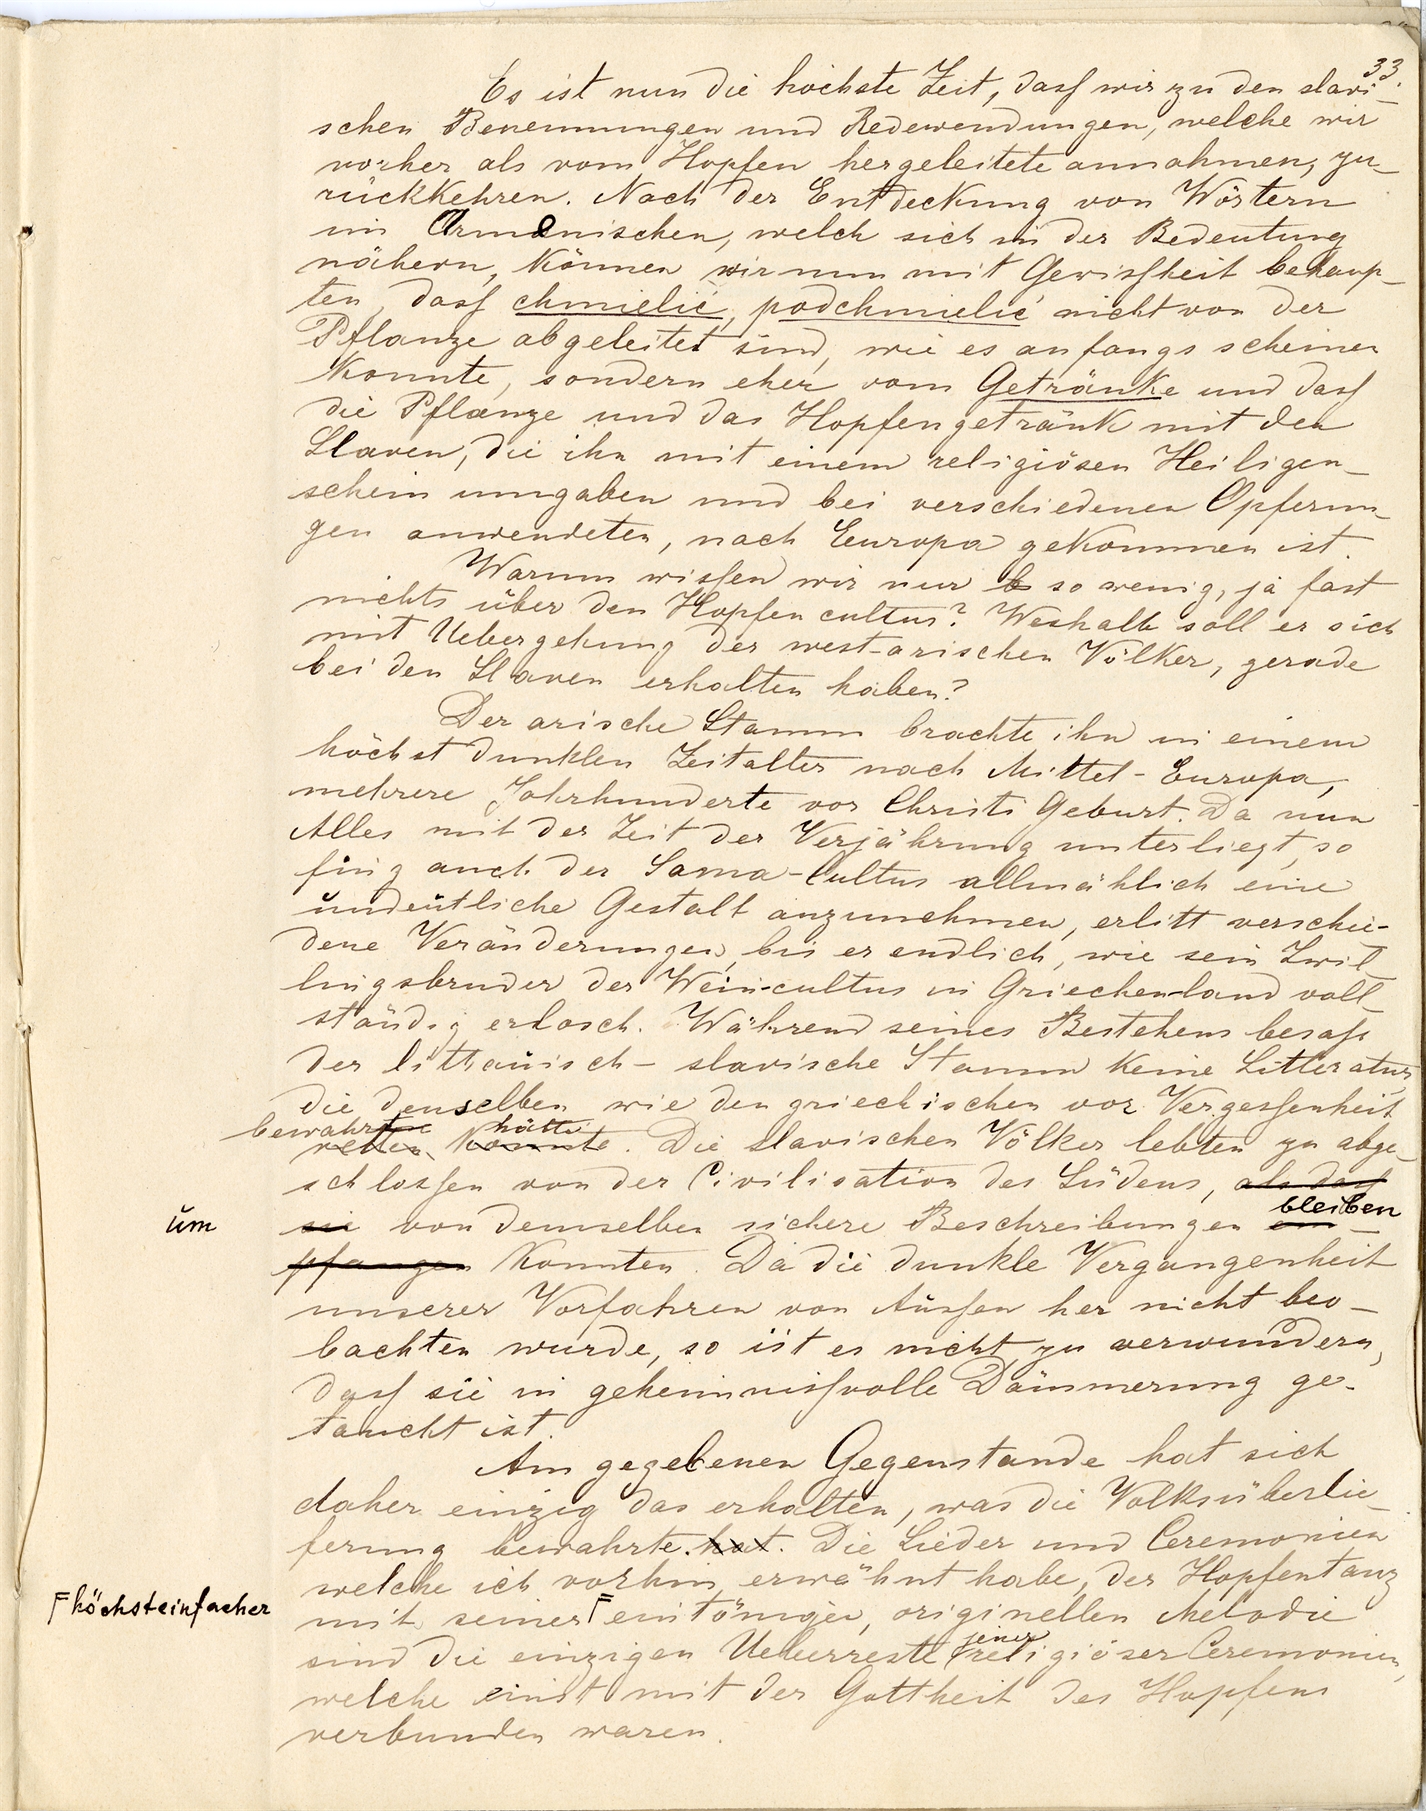 33.
Es ist nun die höchste Zeit, dass wir zu den slavi-
schen Benennungen und Redewendungen, welche wir
vorher als vom Hopfen hergeleitete annahmen, zu-
rückkehren. Nach der Entdeckung von Wörtern
im Armenischen, welch sich in der Bedeutung
nähern, können wir nun mit Gewissheit behaup-
ten, dass chmielić, podchmielić nicht von der
Pflanze abgeleitet sind, wie es anfangs scheinen
konnte, sondern eher vom Getränke und dass
die Pflanze und das Hopfengetränk mit den
Slaven, die ihn mit einem religiösen Heiligen-
schein umgaben und bei verschiedenen Opferun-
gen anwendeten, nach Europa gekommen ist.
Warum wissen wir nur b so wenig, ja fast
nichts über den Hopfencultus? Weshalb soll er sich
mit Uebergehung der west-arischen Völker, gerade
bei den Slaven erhalten haben?
Der arische Stamm brachte ihn in einem
höchst dunklen Zeitalter nach Mittel-Europa,
mehrere Jahrhunderte vor Christi Geburt. Da nun
Alles mit der Zeit der Verjährung unterliegt, so
fing auch der Soma-Cultus allmählich eine
undeutliche Gestalt anzunehmen, erlitt verschie-
dene Veränderungen, bis er endlich, wie sein Zwil-
lingsbruder der Wein-cultus in Griechen-land voll-
ständig erlosch. Während seines Bestehens besass
der littauisch-slavische Stamm keine Litteratur,
die denselben wie den griechischen vor Vergessenheit
bewahrte hätte
retten konnte. Die slavischen Völker lebten zu abge-
schlossen von der Civilisation des Südens, als dass
um sie von demselben sichere Beschreibungen em- bleiben
pfangen konnten. Da die dunkle Vergangenheit
unserer Vorfahren von Aussen her nicht beo-
bachten wurde, so ist es nicht zu verwundern,
dass sie in geheimnissvolle Dämmerung ge-
taucht ist.
Am gegebenen Gegenstande hat sich
daher einzig das erhalten, was die Volksüberlie-
ferung bewahrte. hat. Die Lieder und Ceremonien
welche ich vorhin erwähnt habe, der Hopfentanz
höchsteinfacher
mit seiner eintöniger, originellen Melodie
sind die einzigen Ueberreste jener religiöser Ceremonien,
welche einst mit der Gottheit des Hopfens
verbunden waren.